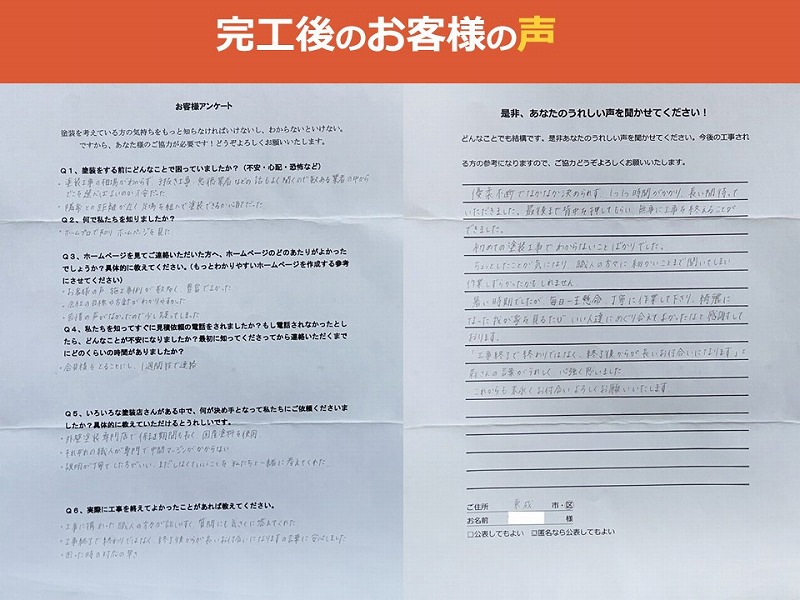 完工後のお客様の声
お客様アンケート
塗装を考えている方の気持ちをもっと知らなければいけないし、わからないといけない。
ですから、あなた様のご協力が必要です！どうぞよろしくお願いいたします。
Q1、塗装をする前にどんなことで困っていましたか？（不安・心配・恐怖など）
・塗装工事の相場がわからず、手抜き工事、悪徳業者などの話もよく聞くので数ある業者の中から
どこを選んばよいのか不安だった
・隣家との距離が近く足場を組んで塗装できるか心配だった
Q2、何で私たちを知りましたか？
・ホームプロで知りホームページを見た
Q3、ホームページを見てご連絡いただいた方へ、ホームページのどのあたりがよかった
でしょうか？具体的に教えてください。（もっとわかりやすいホームページを作成する参考
にさせてください）
・お客様の声、施工事例が数多く、豊富でよかった
・会社の目標や方針がわかりやすかった
・苦情の声がなかったので少し疑ってしました
Q4、私たちを知ってすぐに見積依頼の電話をされましたか？もし電話されなかったとし
たら、どんなことが不安になりましたか？最初に知ってくださってから連絡いただくまで
にどのくらいの時間がありましたか？
・合見積をとることにし、1週間程で連絡
Q5、いろいろな塗装店さんがある中で、何が決め手となって私たちにご依頼くださいま
したか？具体的に教えていただけるとうれしいです。
・外壁塗装専門店で保証期間も長く、国産塗料を使用
・それぞれの職人が専門で中間マージンがかからない
・説明が丁寧でした方がいい、まだしなくていいことを私たちと一緒に考えてくれた
Q6、実際に工事を終えてよかったことがあれば教えてください。
・工事に携わった職人の方々が話しやすく質問にも気さくに答えてくれた
・工事終了で終わりではなく、終了後からが長いお付合いになりますの言葉に安心しました
・困った時の対応の早さ
是非、あなたのうれしい声を聞かせてください！
どんなことでも結構です。是非あなたのうれしい声を聞かせてください。今後の工事され
る方の参考になりますので、ご協力どうぞよろしくお願いいたします。
優柔不断でなかなか決められず、1つ1つ時間がかかり、長い間待って
いただきました。最後まで背中を押してもらい、無事に工事を終えることが
できました。
初めての塗装工事でわからないことばかりでした。
ちょっとしたことが気になり、職人の方々に細かいことまで聞いてしまい
作業しずらかったかもしれません。
暑い時期でしたが、毎日一生懸命、丁寧に作業して下さり、綺麗に
なった我が家を見るたび、いい人達にめぐり会えてよかったなと感謝して
おります。
「工事終了で終わりではなく、終了後からが長いお付合いになります」と
の言葉がうれしく、心強く思いました
これからも末永くお付合いよろしくお願いいたします。
ご住所 東成 市・区
お名前 様
□公表してもよい ☑匿名なら公表してもよい